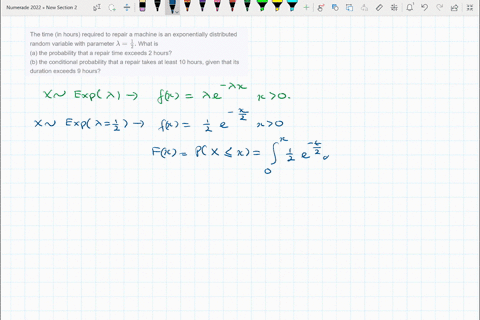 Numerade 2022 > New Section 2
The time (in hours) required to repair a machine is an exponentially distributed
random variable with parameter λ = 1/2. What is
(a) the probability that a repair time exceeds 2 hours?
(b) the conditional probability that a repair takes at least 10 hours, given that its
duration exceeds 9 hours?
X ~ Exp(λ) → f(x) = λe^{-λx} x>0.
X ~ Exp(λ=1/2) → f(x) = 1/2 e^{-x/2} x>0
F(x) = P(X ≤ x) = ∫_0^x 1/2 e^{-t/2} d